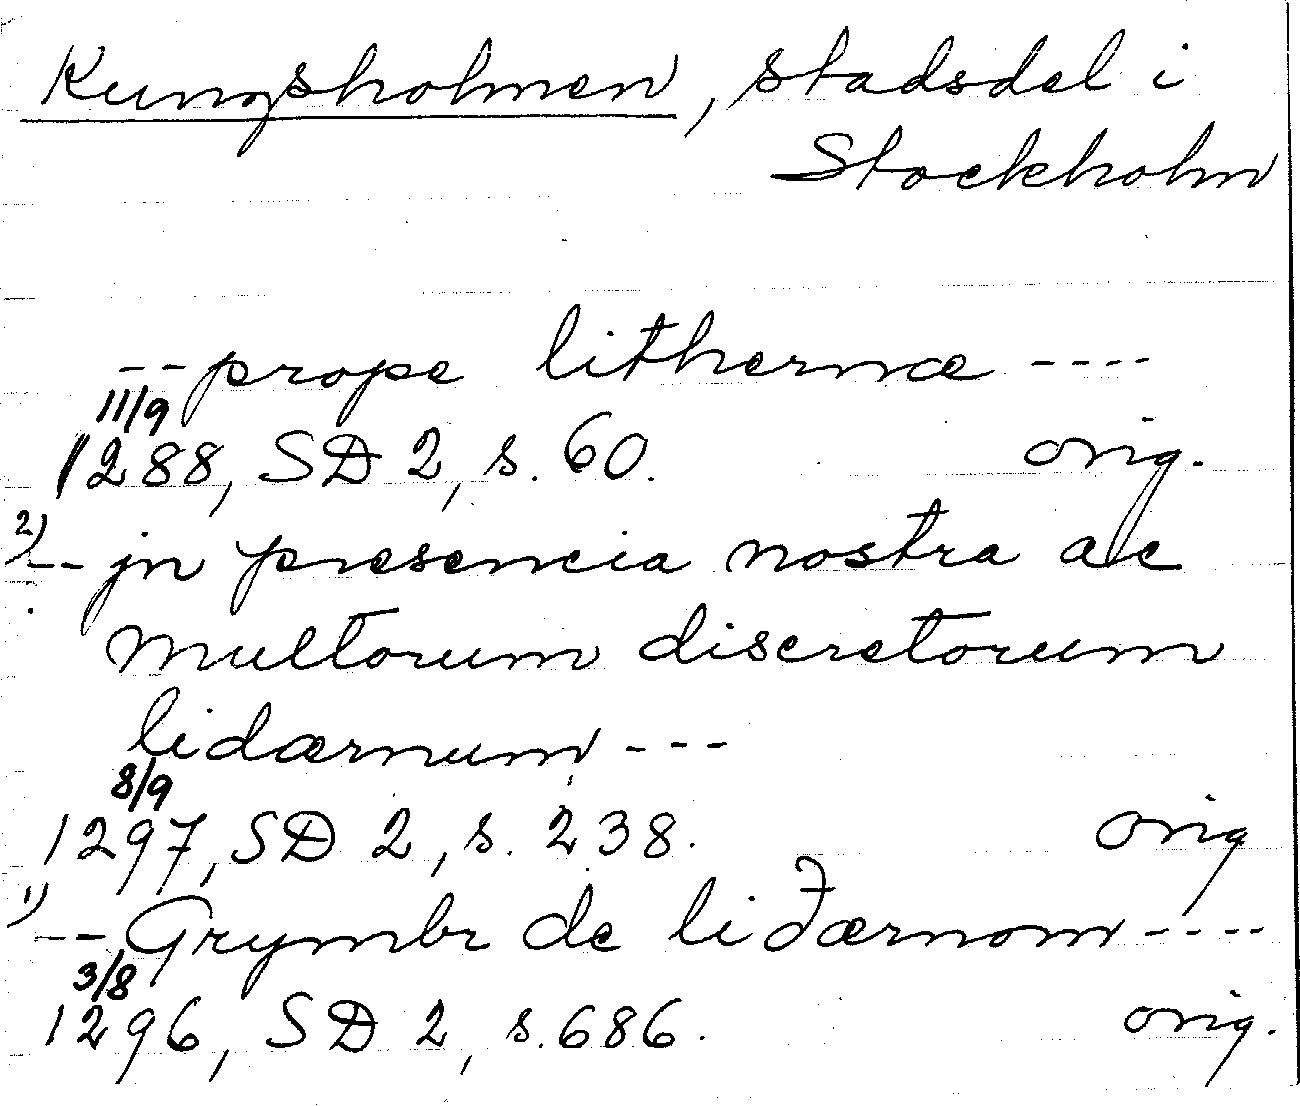 Kungsholmen, stadsdel i
Stockholm
-- prope lithernæ ----
11/9
1288, SD 2, s. 60. orig.
2) -- jn presencia nostra ac
multorum discretorum
lidærnum ---
8/9
1297, SD 2, s. 238. orig
1) -- Grymbr de liðærnom ----
3/8
1296, SD 2, s. 686. orig.